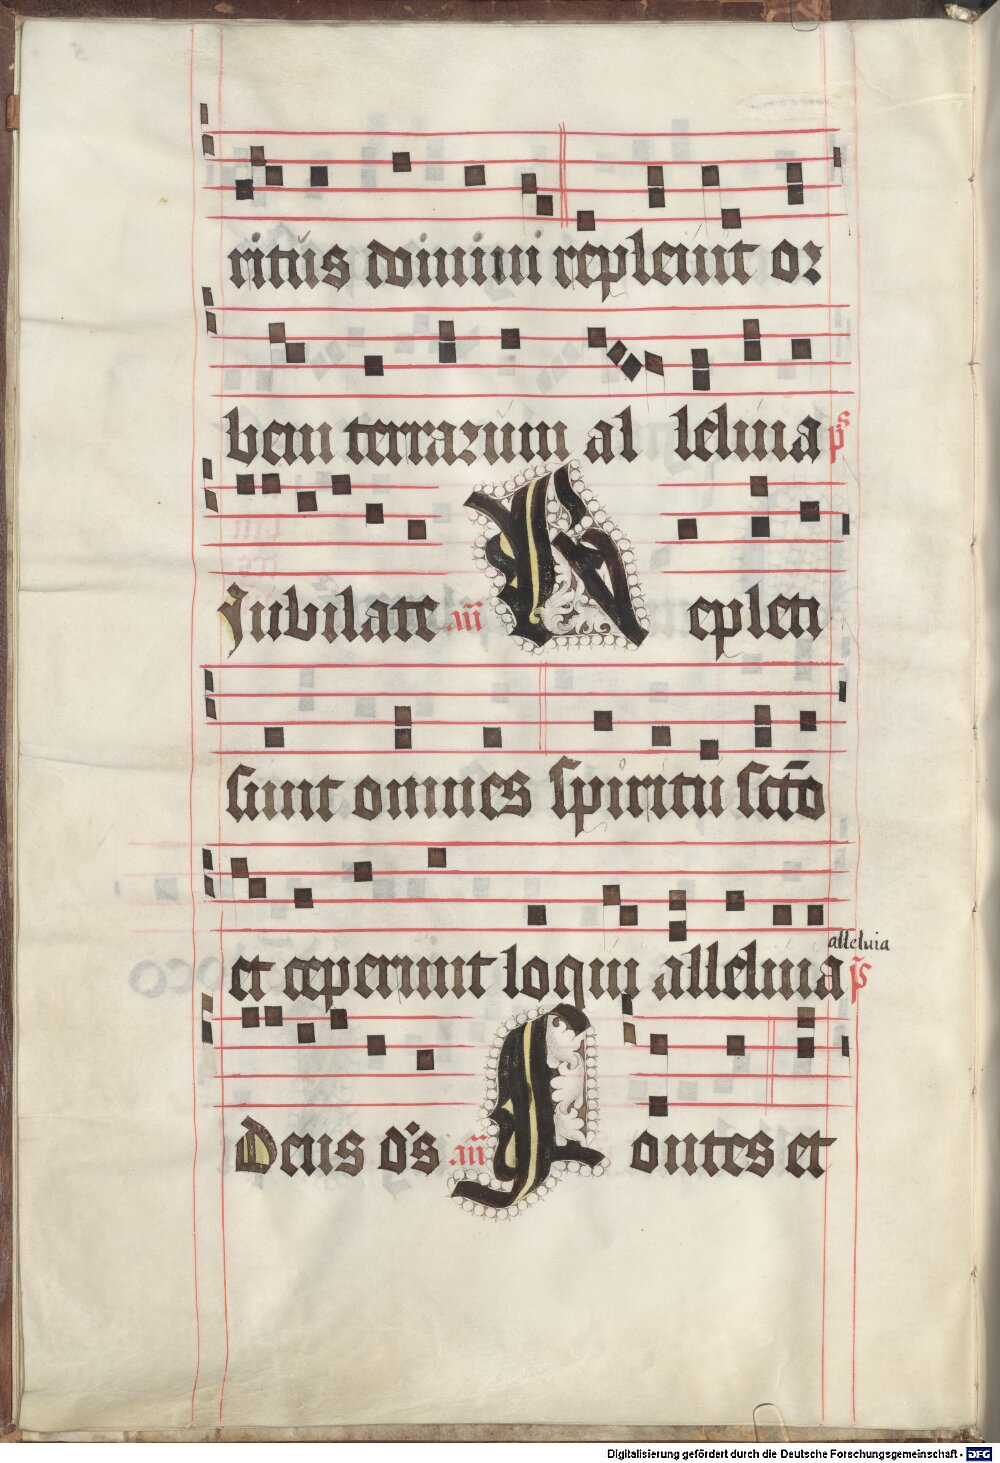 ritus domini repleuit or
bem terrarum al leluia ps̄
Jubilate an̄ Repleti
sunt omnes spiritu sc̄to
et ceperunt loqui alleluia alleluia ps̄
Deus d's an̄ Fontes et
Digitalisierung gefördert durch die Deutsche Forschungsgemeinschaft - DFG